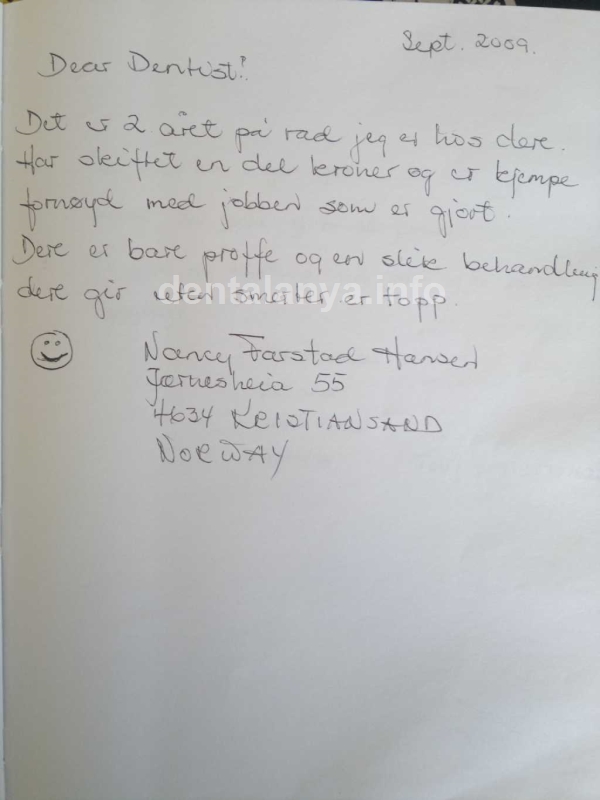 Sept. 2009.
Dear Dentist!
Det er 2 året på rad jeg er hos dere.
Har skiftet en del kroner og er kjempe
fornøyd med jobben som er gjort.
Dere er bare proffe og en slik behandling
dere gir uten smerter er topp.
dentalanya.info
Nancy Farstad Hansen
Jærnesheia 55
4634 KRISTIANSAND
NORWAY